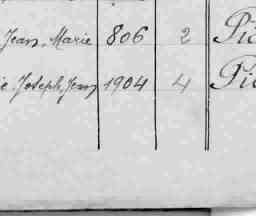 Jean, Marie 806 2 Pi
e. Joseph, Jean 1904 4 Pi